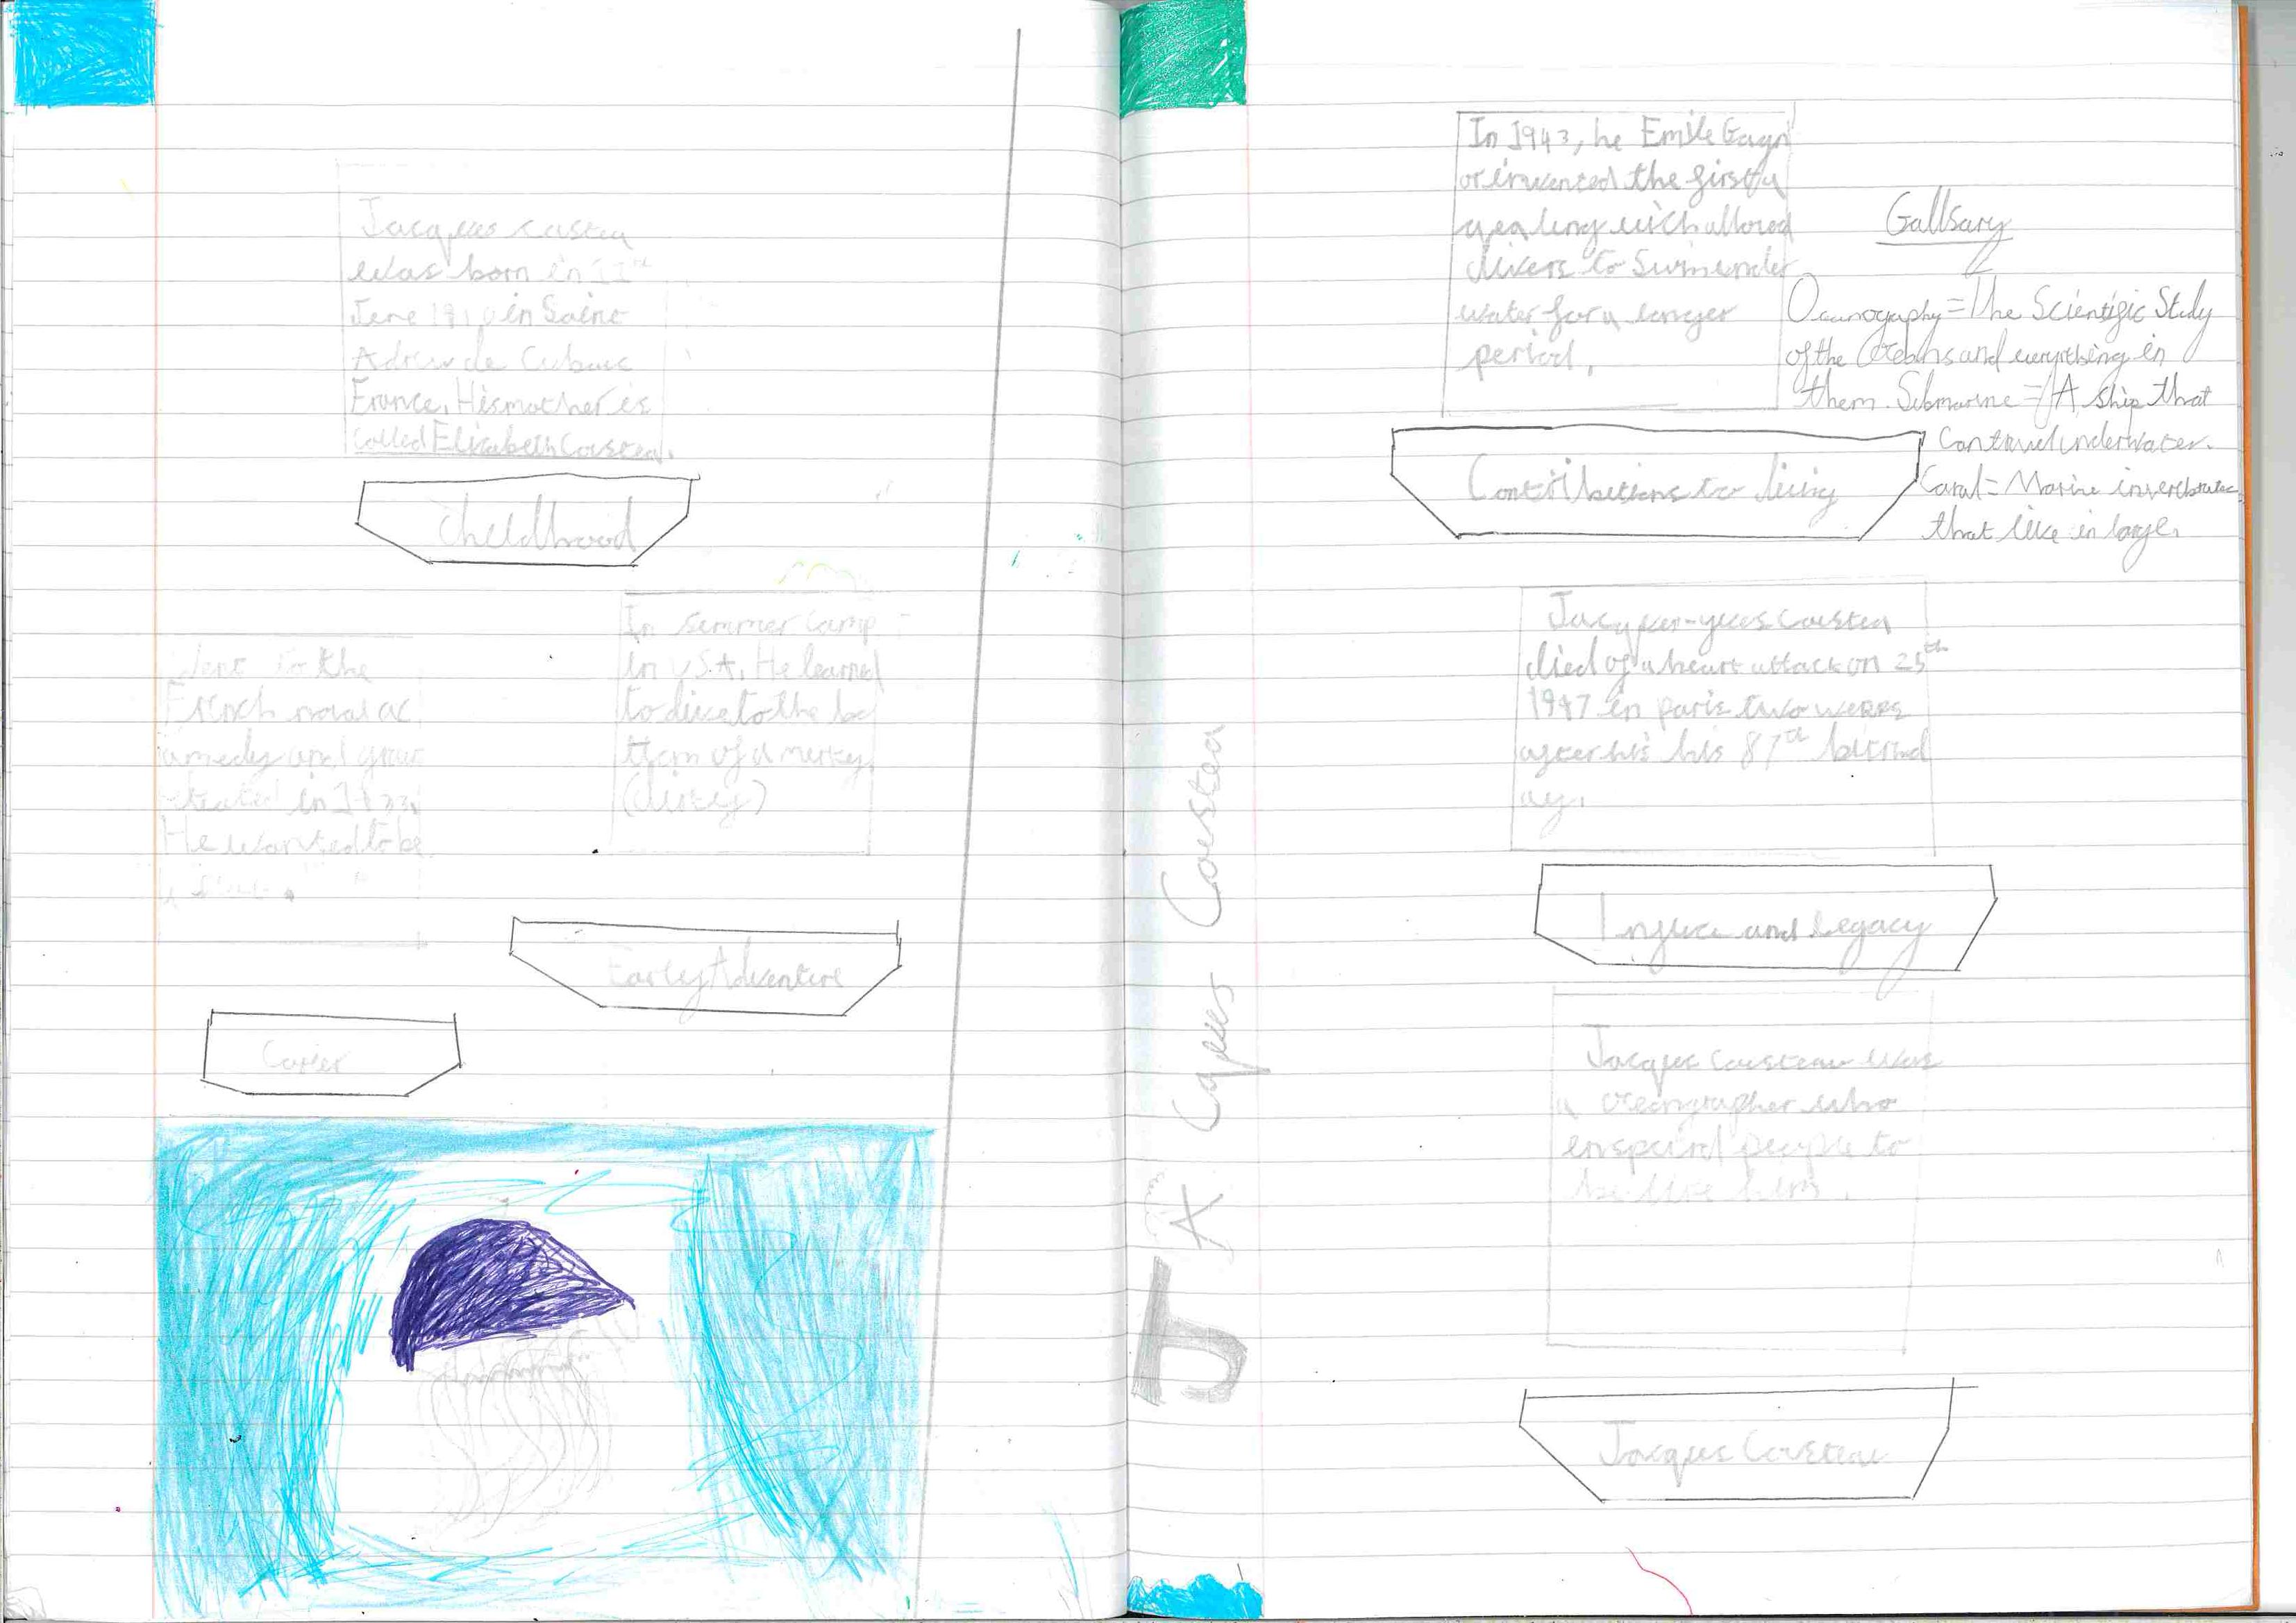 Jacques Coustea
was born in 11th
June 1910 in Saint
Adrew de Cubauc
France, His mother is
called Elizabeth Coustea.
Childhood
In summer camp
in USA. He learned
to dive to the bo
ttem of a merkey
(dirtey)
Early Adventure
went to the
French naval ac
amedy and grau
tuated in
He wanted to be
a
Carier
Jacques Coustea
In 1943, he Emile Gagn
or invented the first a
qea lung wich allowed
divers to swim under
water for a longer
period.
Contribitions to living
Gallsary
Oceanography = The Scientific Study
of the Oceans and everything in
them. Submarine = A ship that
can travel underwater.
Coral = Marine invertebrates
that live in large.
Jacques-yves Coustea
died of a heart attack on 25th
1997 in paris two weeks
after his his 87th birthd
ay.
Influce and legacy
Jacques Cousteau was
a oceangrapher who
enspeired people to
be like him.
Jacques Cousteau